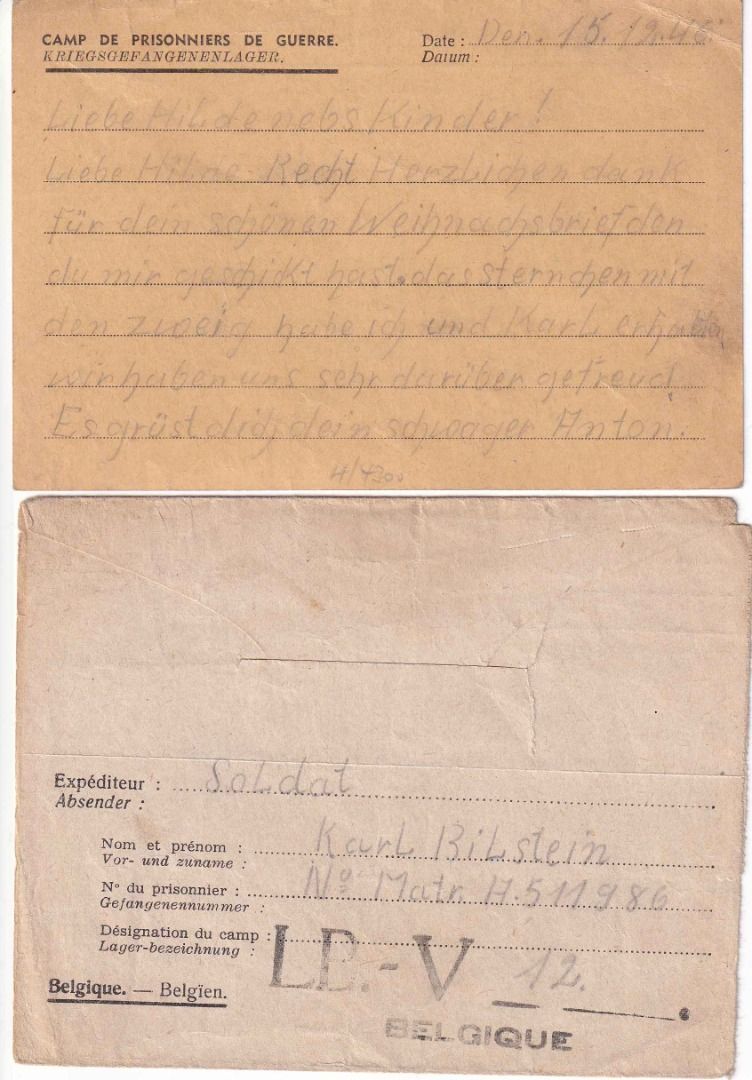 CAMP DE PRISONNIERS DE GUERRE.
KRIEGSGEFANGENENLAGER.
Date : Den. 15.12.46
Datum :
Liebe Hilde nebs Kinder!
Liebe Hilde Recht Herzlichen dank
für dein schönen Weihnachsbrief den
du mir geschikt hast. das Sternchen mit
den zweig habe ich und Karl erhalten
wir haben uns sehr darüber gefreud.
Es grüst dich dein schwager Anton.
4/4300
Expéditeur : Soldat
Absender :
Nom et prénom : Karl Bilstein
Vor- und zuname :
N° du prisonnier : No Matr. A.511986
Gefangenennummer :
Désignation du camp :
Lager-bezeichnung :
LP.-V 12.
Belgique. — Belgïen.
BELGIQUE